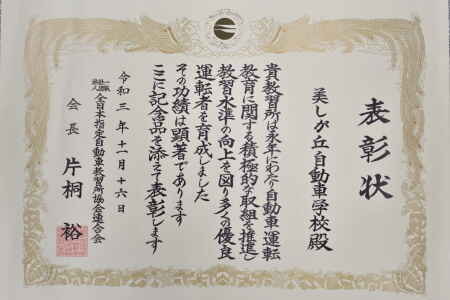 表彰状
美しが丘自動車学校殿
貴教習所は永年にわたり自動車運転
教育に関する積極的な取組を推進し
教習水準の向上を図り多くの優良
運転者を育成しました
その功績は顕著であります
ここに記念品を添えて表彰します
令和三年十一月十六日
一般社団法人全日本指定自動車教習所協会連合会
会長 片桐裕